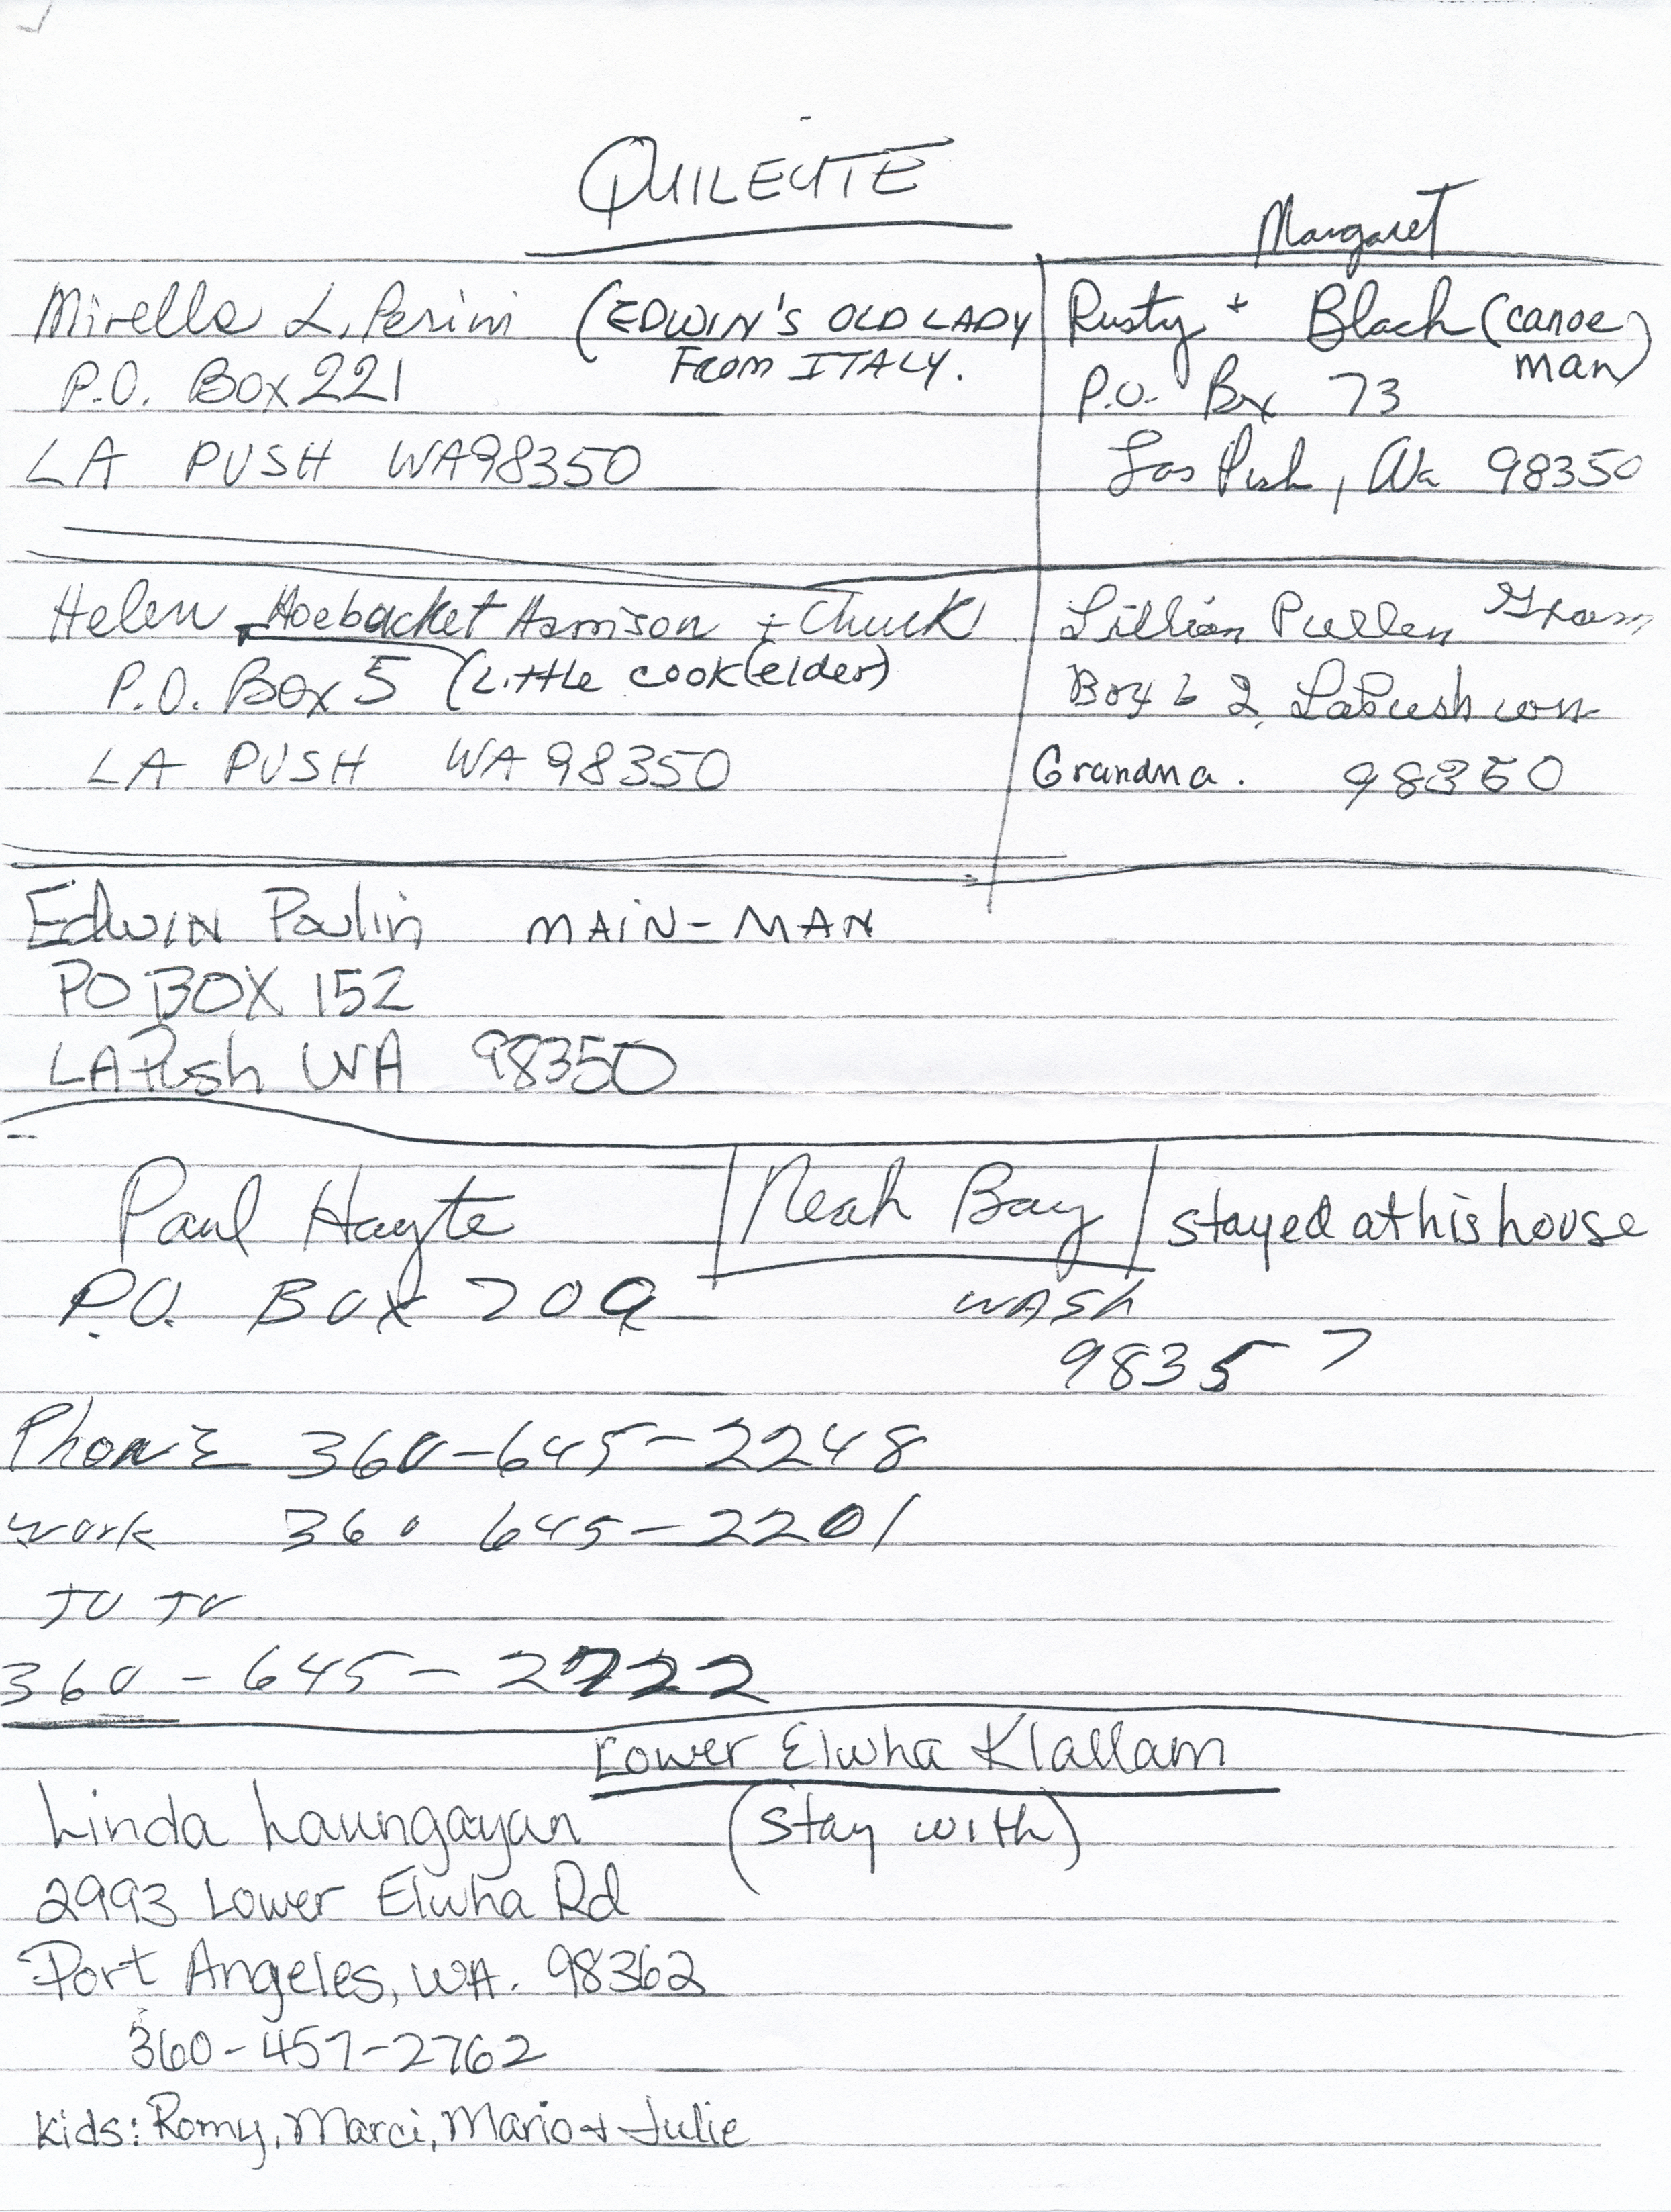 QUILEUTE
Mirella L. Perini (EDWIN'S OLD LADY
FROM ITALY.
P.O. Box 221
LA PUSH WA 98350
Margaret
Rusty + Black (canoe
man)
P.O. Bx 73
Las Push, Wa 98350
Helen Hoebacket Harrison + Chuck
P.O. Box 5 (Little cook (elder)
LA PUSH WA 98350
Lillian Pullen
Box 62, LaPush wn
Grandma. 98350
Edwin Paulin MAIN-MAN
PO BOX 152
LAPush WA 98350
Paul Hayte Neah Bay stayed at his house
P.O. Box 209 WASh
98357
PhonE 360-645-2248
work 360 645-2201
360-645-2722
Lower Elwha Klallam
Linda Laungayan (stay with)
2993 Lower Elwha Rd
Port Angeles, WA. 98362
360-457-2762
Kids: Romy, Marci, Mario + Julie